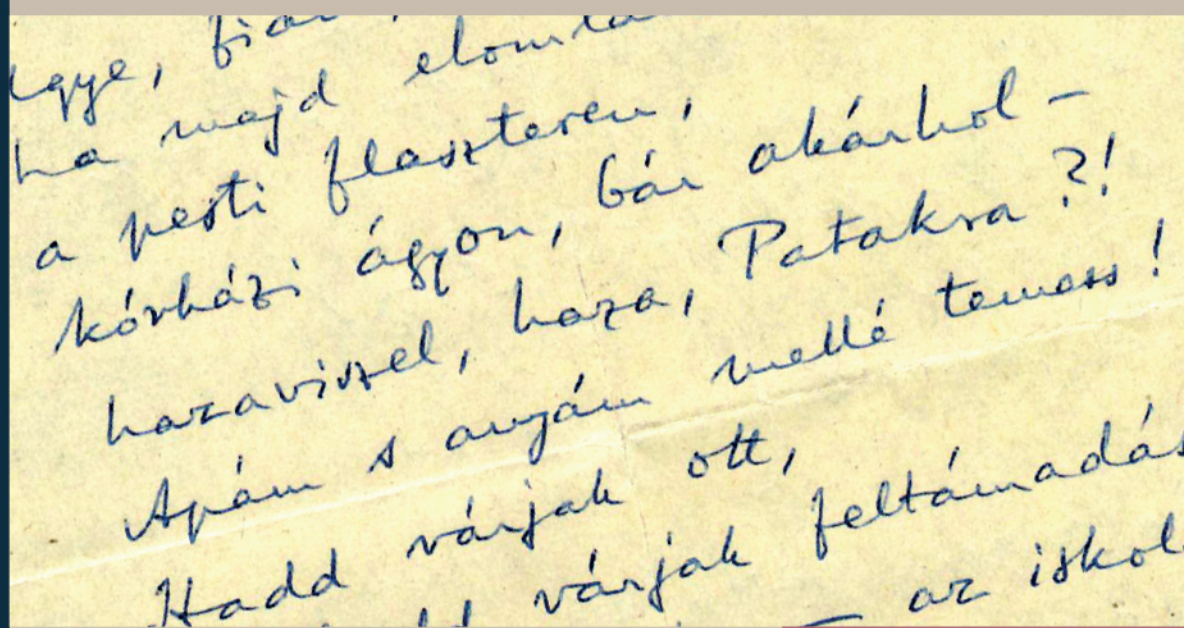 ugye, fiam,
ha majd elomla
a pesti flaszteren,
kórházi ágyon, bár akárhol –
hazaviszel, haza, Patakra?!
Apám s anyám mellé temess!
Hadd várjak ott,
várjak feltámadás
– az iskol